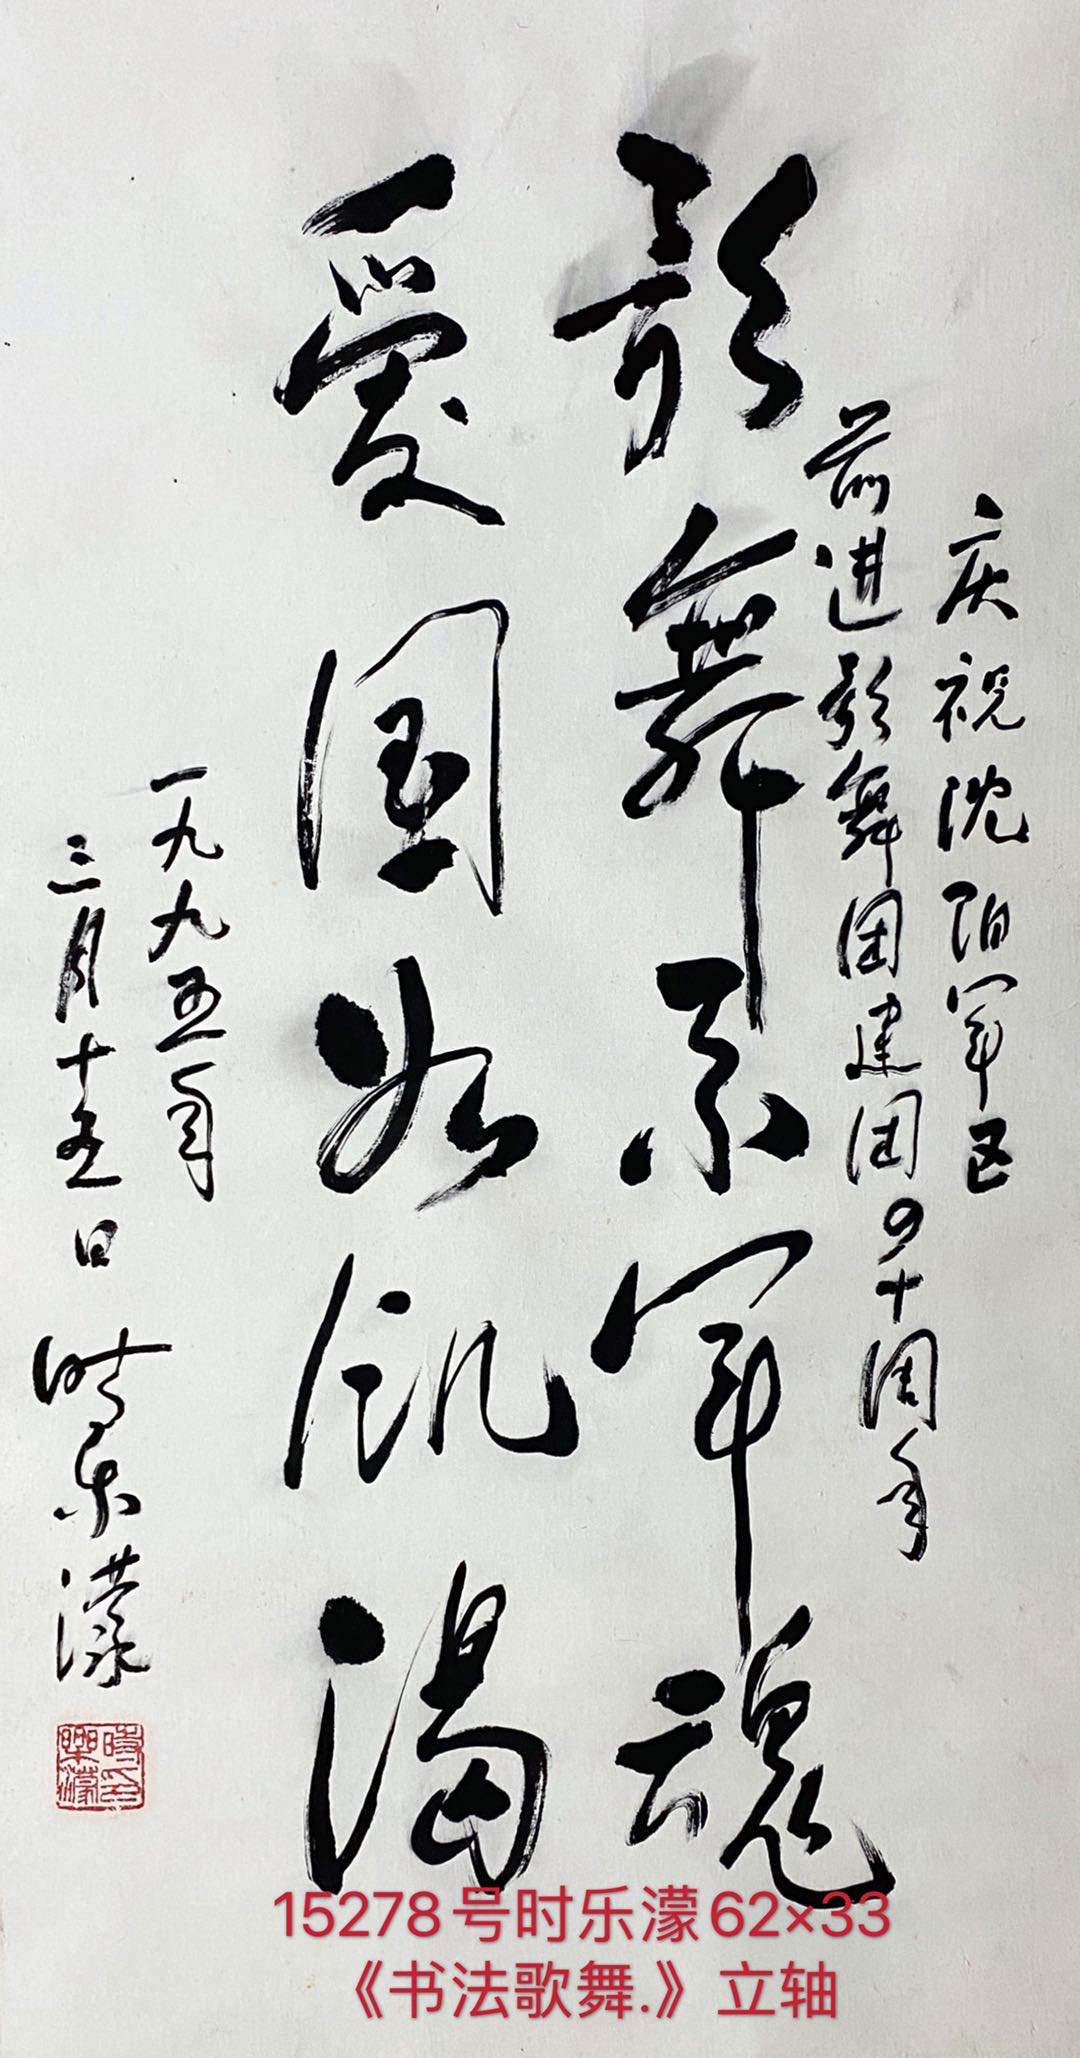 庆祝沈阳军区
前进歌舞团建团四十周年
歌舞系军魂
爱国如饥渴
一九九五年
三月十五日 时乐濛
時樂濛印
15278号时乐濛62×33
《书法歌舞.》立轴